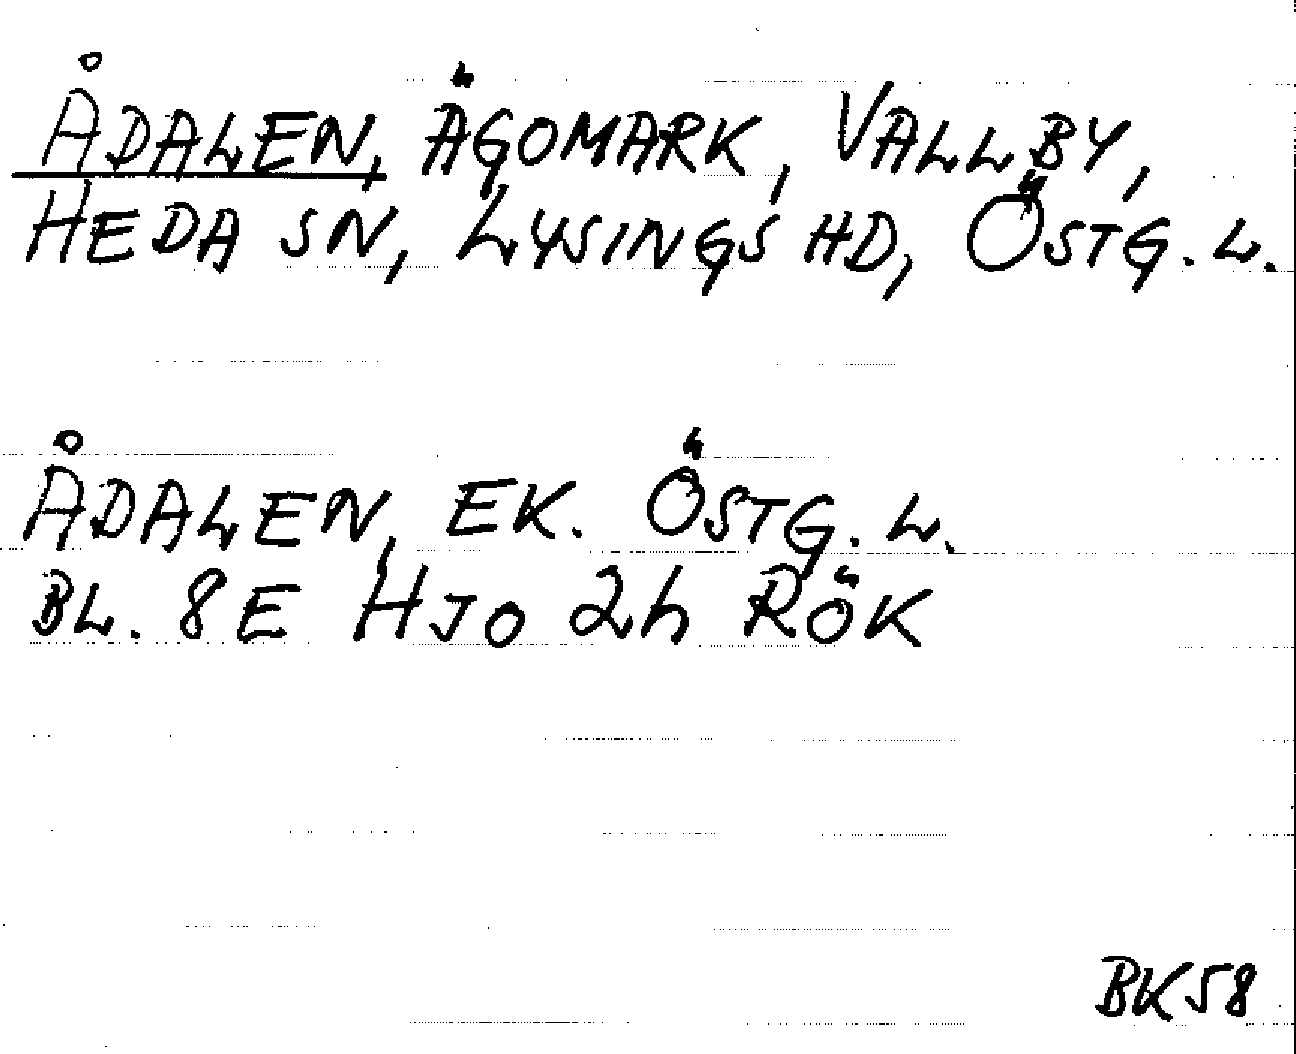 ÅDALEN, ÄGOMARK, VALLBY,
HEDA SN, LYSINGS HD, ÖSTG. L.
ÅDALEN, EK. ÖSTG. L.
BL. 8E HJO 2h RÖK
BK58